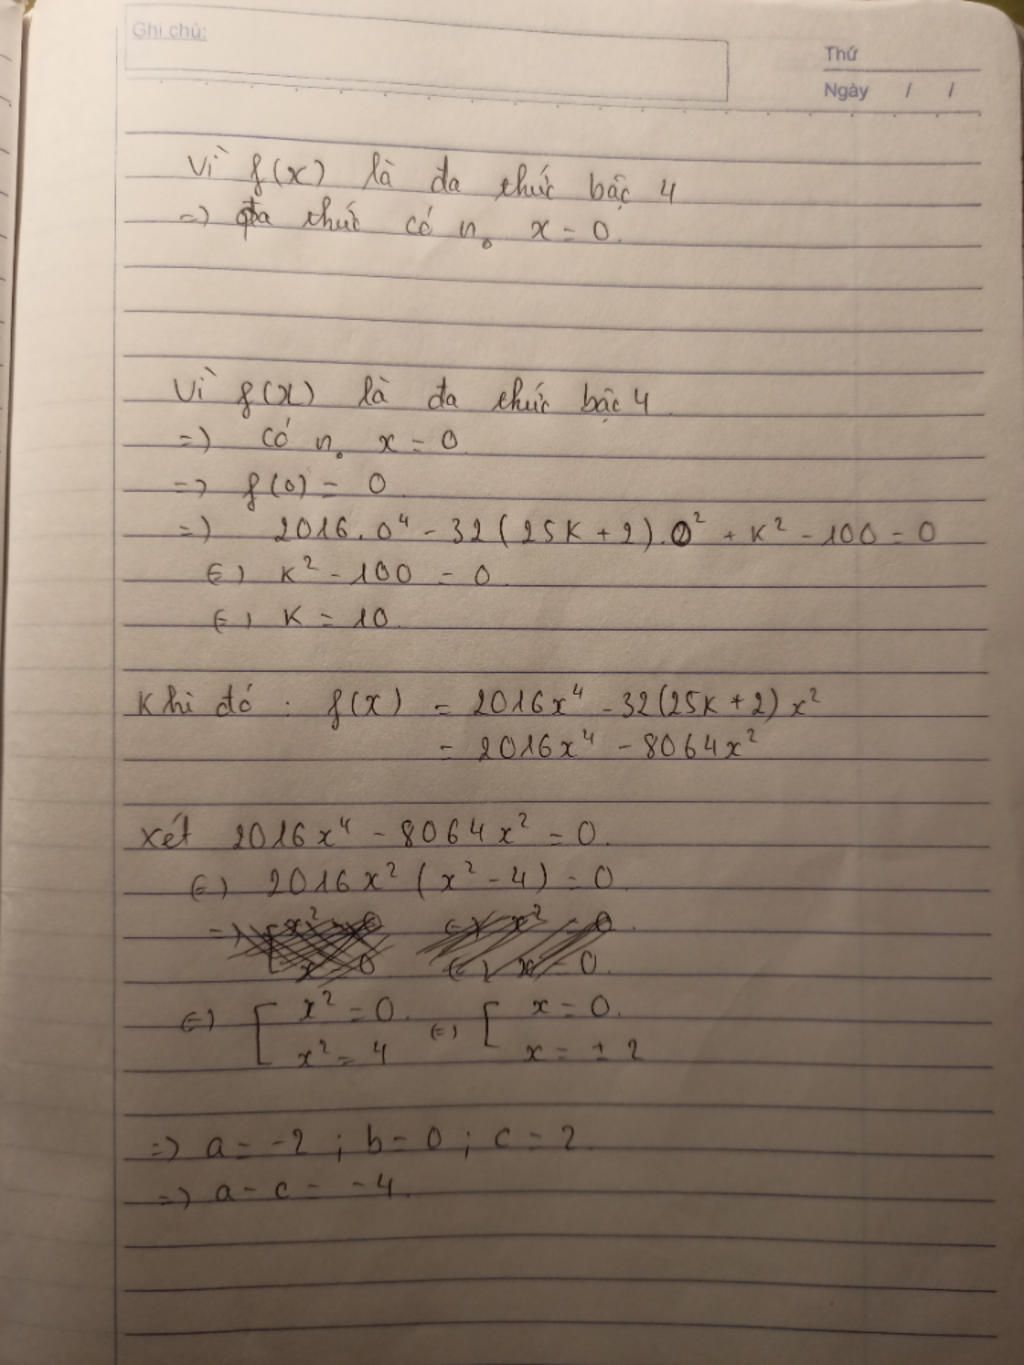 Ghi chú:
Thứ
Ngày / /
Vì f(x) là đa thức bậc 4
=> đa thức có n₀ x = 0.
Vì f(x) là đa thức bậc 4
=> có n₀ x = 0
=> f(0) = 0
=> 2016.0⁴ - 32(25K + 2).0² + K² - 100 = 0
(=) K² - 100 = 0
(=) K = 10.
Khi đó : f(x) = 2016x⁴ - 32(25K + 2)x²
= 2016x⁴ - 8064x²
Xét 2016x⁴ - 8064x² = 0.
(=) 2016x²(x² - 4) = 0
(=) [ x² = 0. (=) [ x = 0.
x² = 4 x = ± 2
=> a = -2 ; b = 0 ; c = 2
=> a - c = -4.